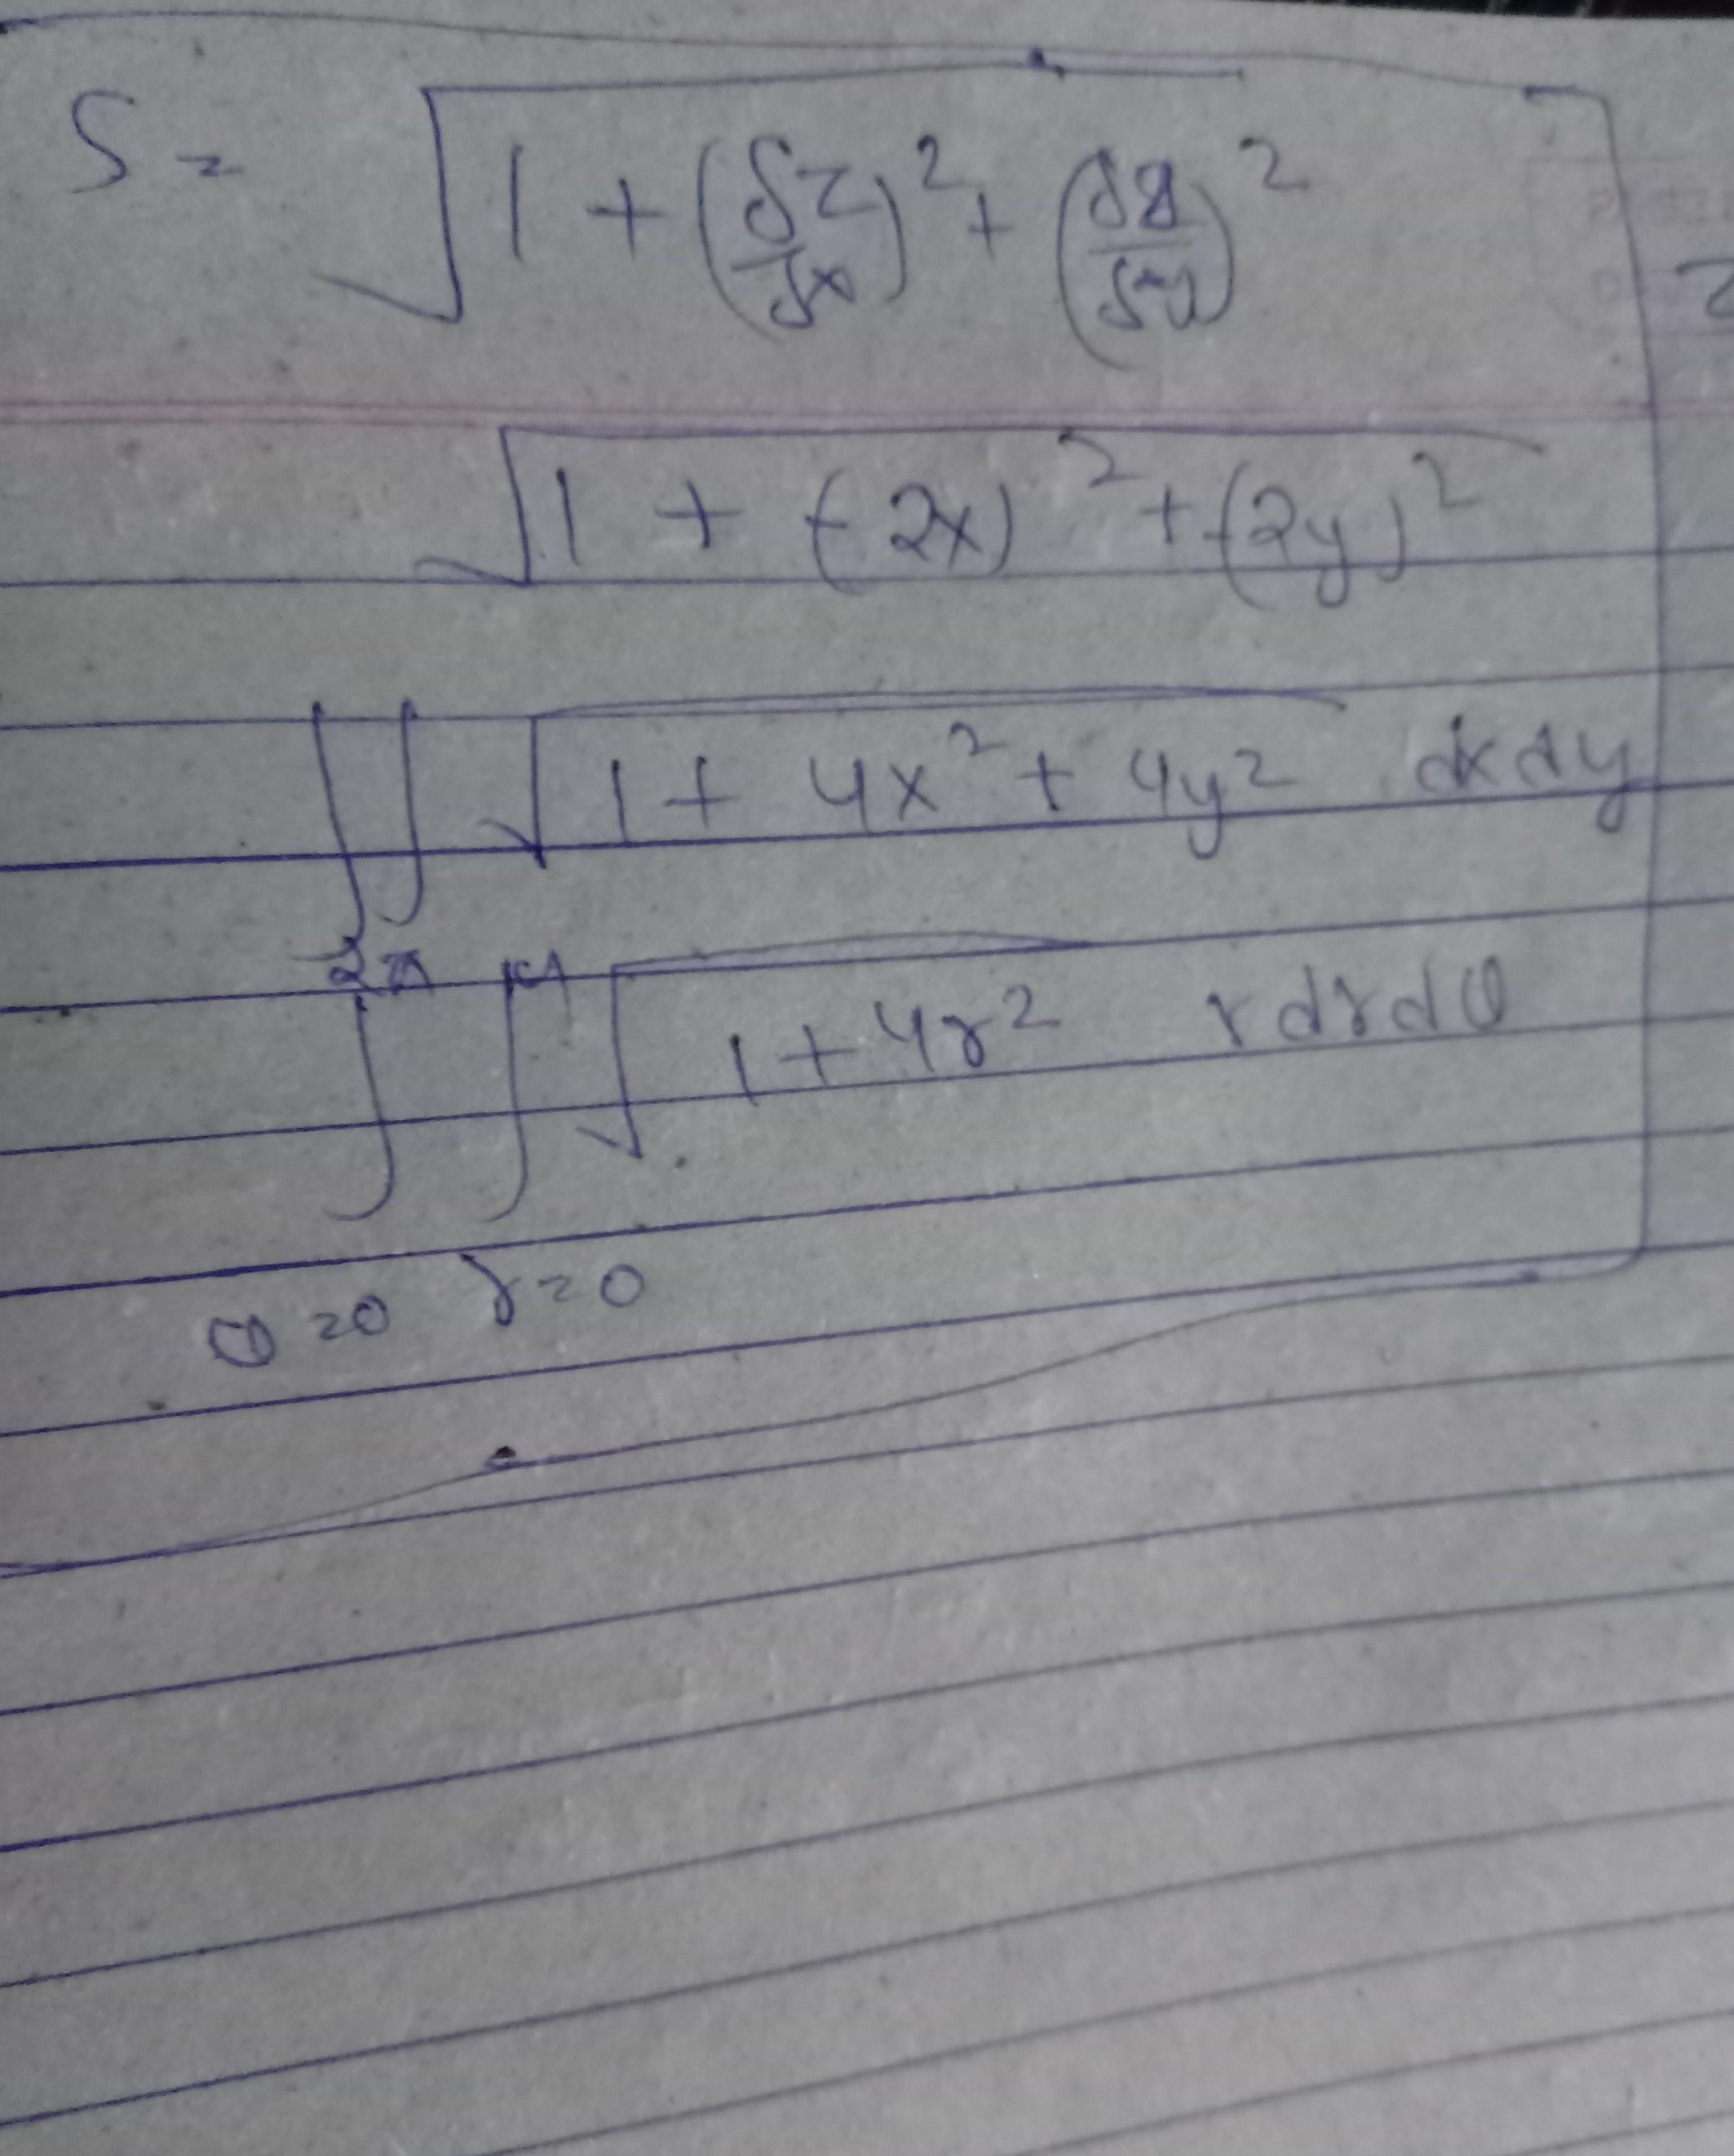 S = √(1 + (δz/δx)² + (δz/δy)²)
√(1 + (-2x)² + (-2y)²)
∫∫ √(1 + 4x² + 4y²) dx dy
2π 4
∫ ∫ √(1 + 4r²) r dr dθ
θ=0 r=0